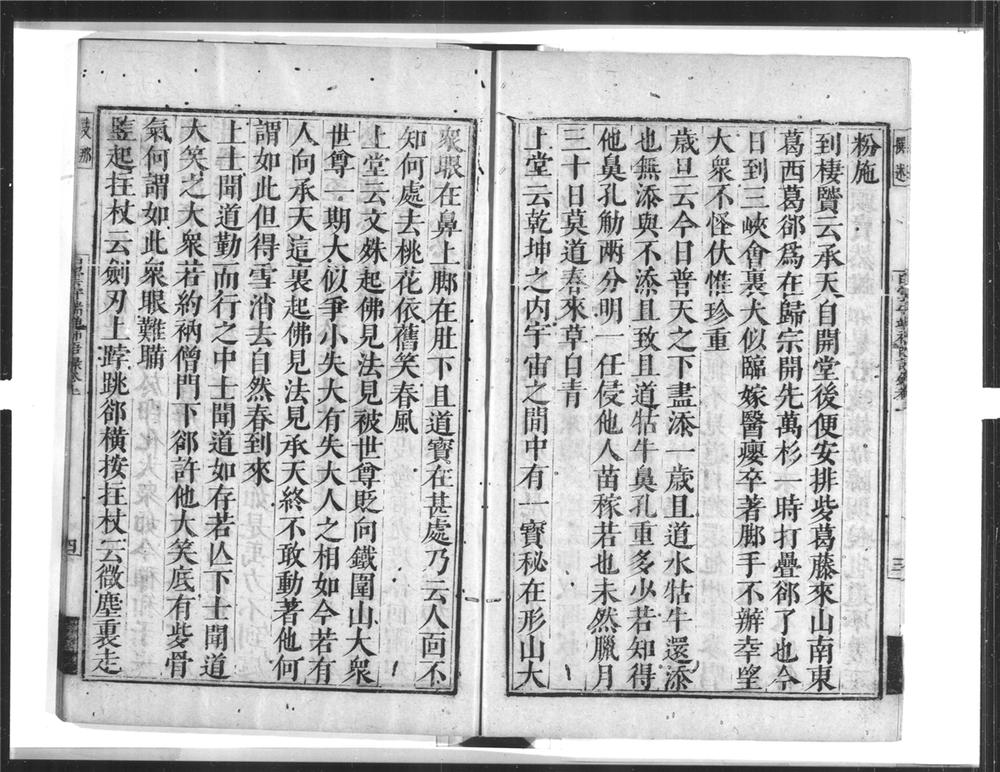 粉施
到棲賢云承天自開堂後便安排些葛藤來山南東
葛西葛郤為在歸宗開先萬杉一時打疊郤了也今
日到三峽會裏大似臨嫁醫癭卒著脚手不辦幸望
大衆不怪伏惟珍重
歳旦云今日普天之下盡添一歳且道水牯牛還添
也無添與不添且致且道牯牛鼻孔重多少若知得
他鼻孔觔兩分明一任侵他人苗稼若也未然臘月
三十日莫道春來草自青
上堂云乾坤之内宇宙之間中有一寶秘在形山大
衆眼在鼻上脚在肚下且道寶在甚處乃云人面不
知何處去桃花依舊笑春風
上堂云文殊起佛見法見被世尊貶向鐵圍山大衆
世尊一期大似爭小失大有失大人之相如今若有
人向承天這裏起佛見法見承天終不敢動著他何
謂如此但得雪消去自然春到來
上士聞道勤而行之中士聞道如存若亾下士聞道
大笑之大衆若約衲僧門下郤許他大笑底有些骨
氣何謂如此衆眼難瞞
竪起拄杖云劍刃上踍跳郤橫按拄杖云微塵裏走
三
四